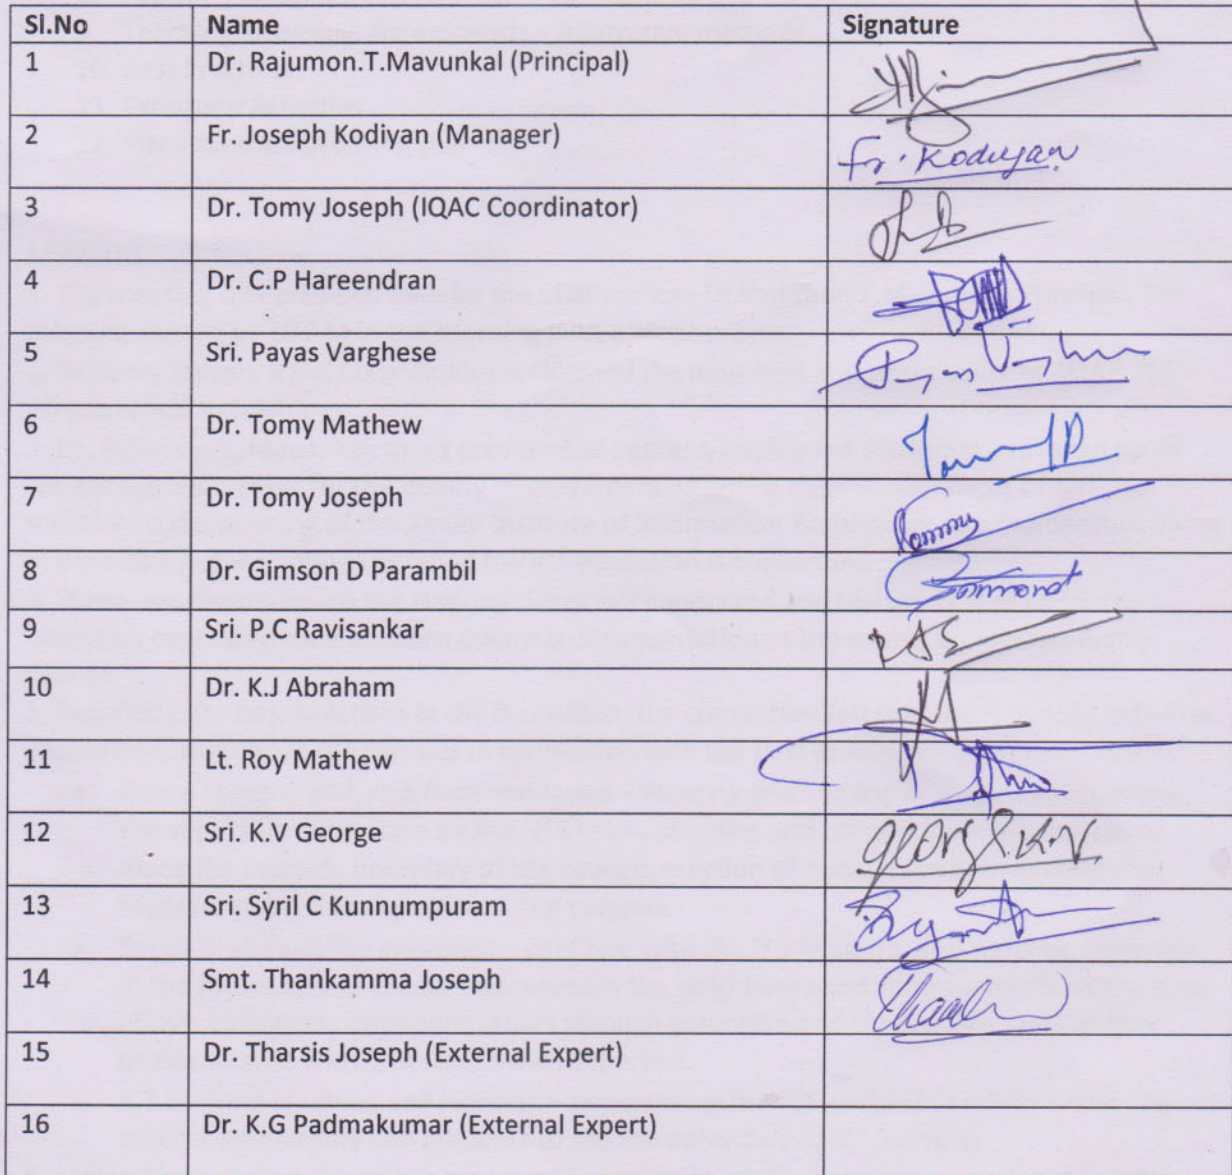 Sl.No Name Signature
1 Dr. Rajumon.T.Mavunkal (Principal)
2 Fr. Joseph Kodiyan (Manager) Fr. Kodiyan
3 Dr. Tomy Joseph (IQAC Coordinator)
4 Dr. C.P Hareendran
5 Sri. Payas Varghese
6 Dr. Tomy Mathew
7 Dr. Tomy Joseph
8 Dr. Gimson D Parambil
9 Sri. P.C Ravisankar
10 Dr. K.J Abraham
11 Lt. Roy Mathew
12 Sri. K.V George George K.V
13 Sri. Syril C Kunnumpuram
14 Smt. Thankamma Joseph
15 Dr. Tharsis Joseph (External Expert)
16 Dr. K.G Padmakumar (External Expert)